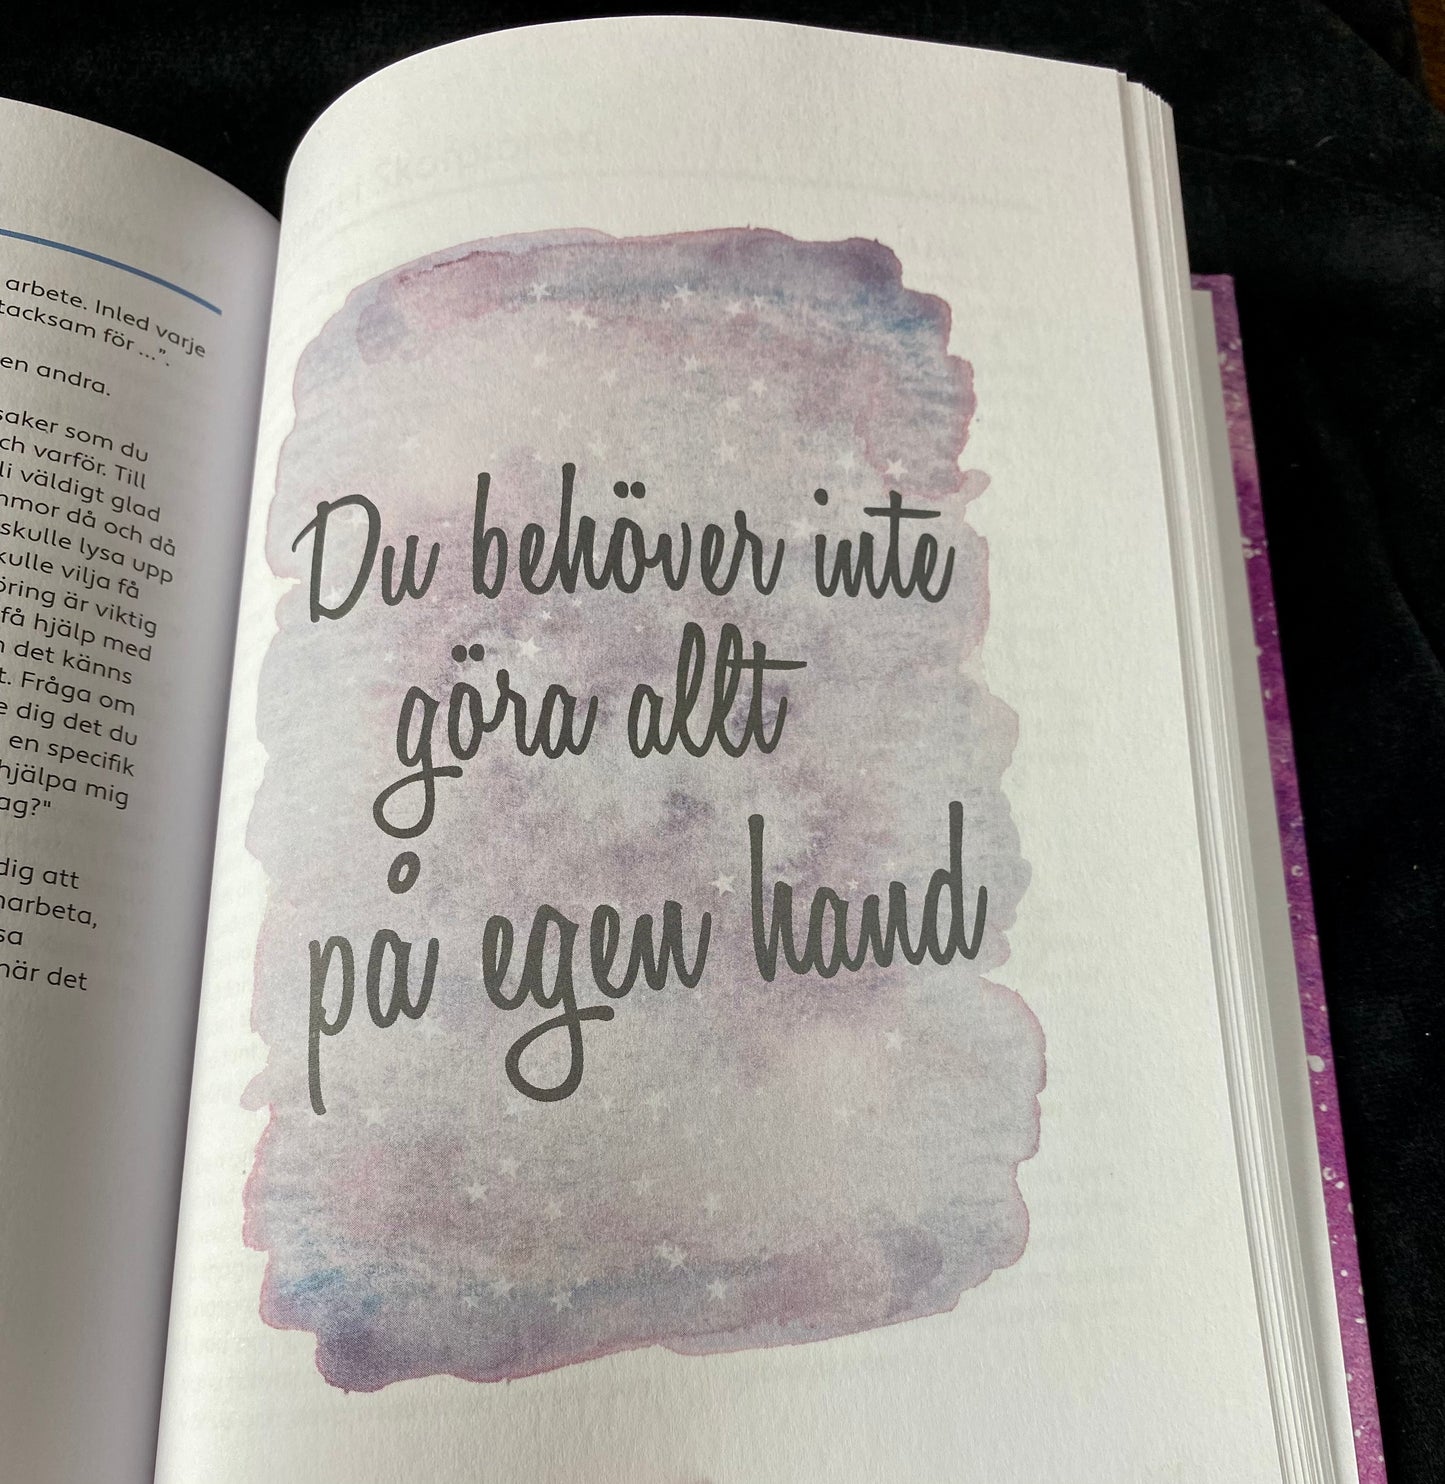 arbete. Inled varje
tacksam för ...”.
en andra.
saker som du
ch varför. Till
li väldigt glad
mmor då och då
skulle lysa upp
kulle vilja få
öring är viktig
få hjälp med
det känns
t. Fråga om
e dig det du
en specifik
hjälpa mig
ag?"
dig att
narbeta,
sa
när det
Du behöver inte
göra allt
på egen hand